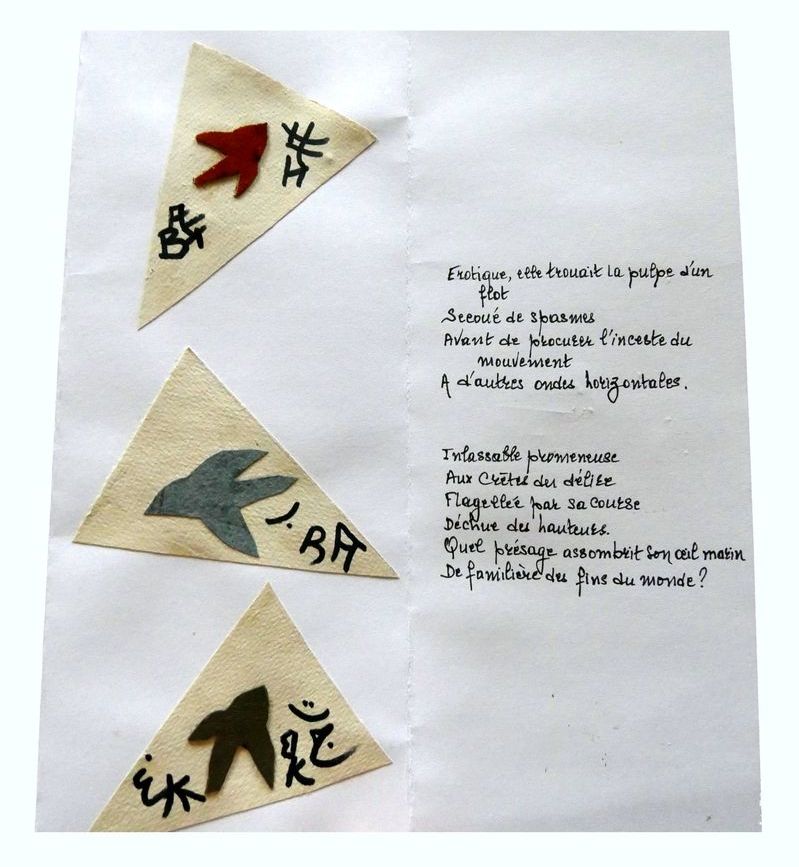 Erotique, elle trouait la pulpe d'un
flot
Secoué de spasmes
Avant de procurer l'inceste du
mouvement
A d'autres ondes horizontales.
Inlassable promeneuse
Aux Crêtes du délire
Flagellée par sa course
Déchue des hauteurs.
Quel présage assombrit son œil marin
De familière des fins du monde ?